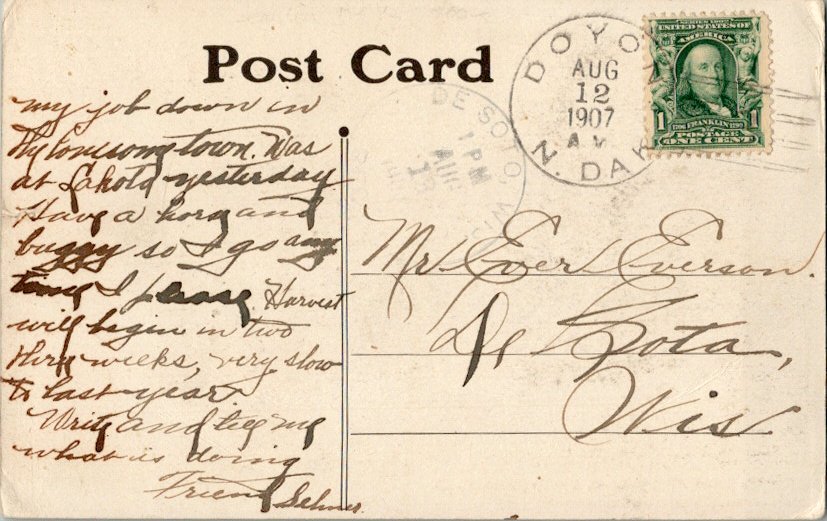 Post Card
DOYON
AUG
12
1907
A.M.
N. DAK
SERIES 1902
UNITED STATES OF
AMERICA
1 1
1706 FRANKLIN 1790
POSTAGE
ONE CENT
DE SOTO, WIS
1 PM
AUG
my job down in
lonesome town. Was
at Lakota yesterday
Have a horse and
buggy so I go any
time I please. Harvest
will begin in two
three weeks, very slow
to last year.
Write and tell me
what is doing
Friend Selmer
Mr. Ever Everson.
De Sota,
Wis